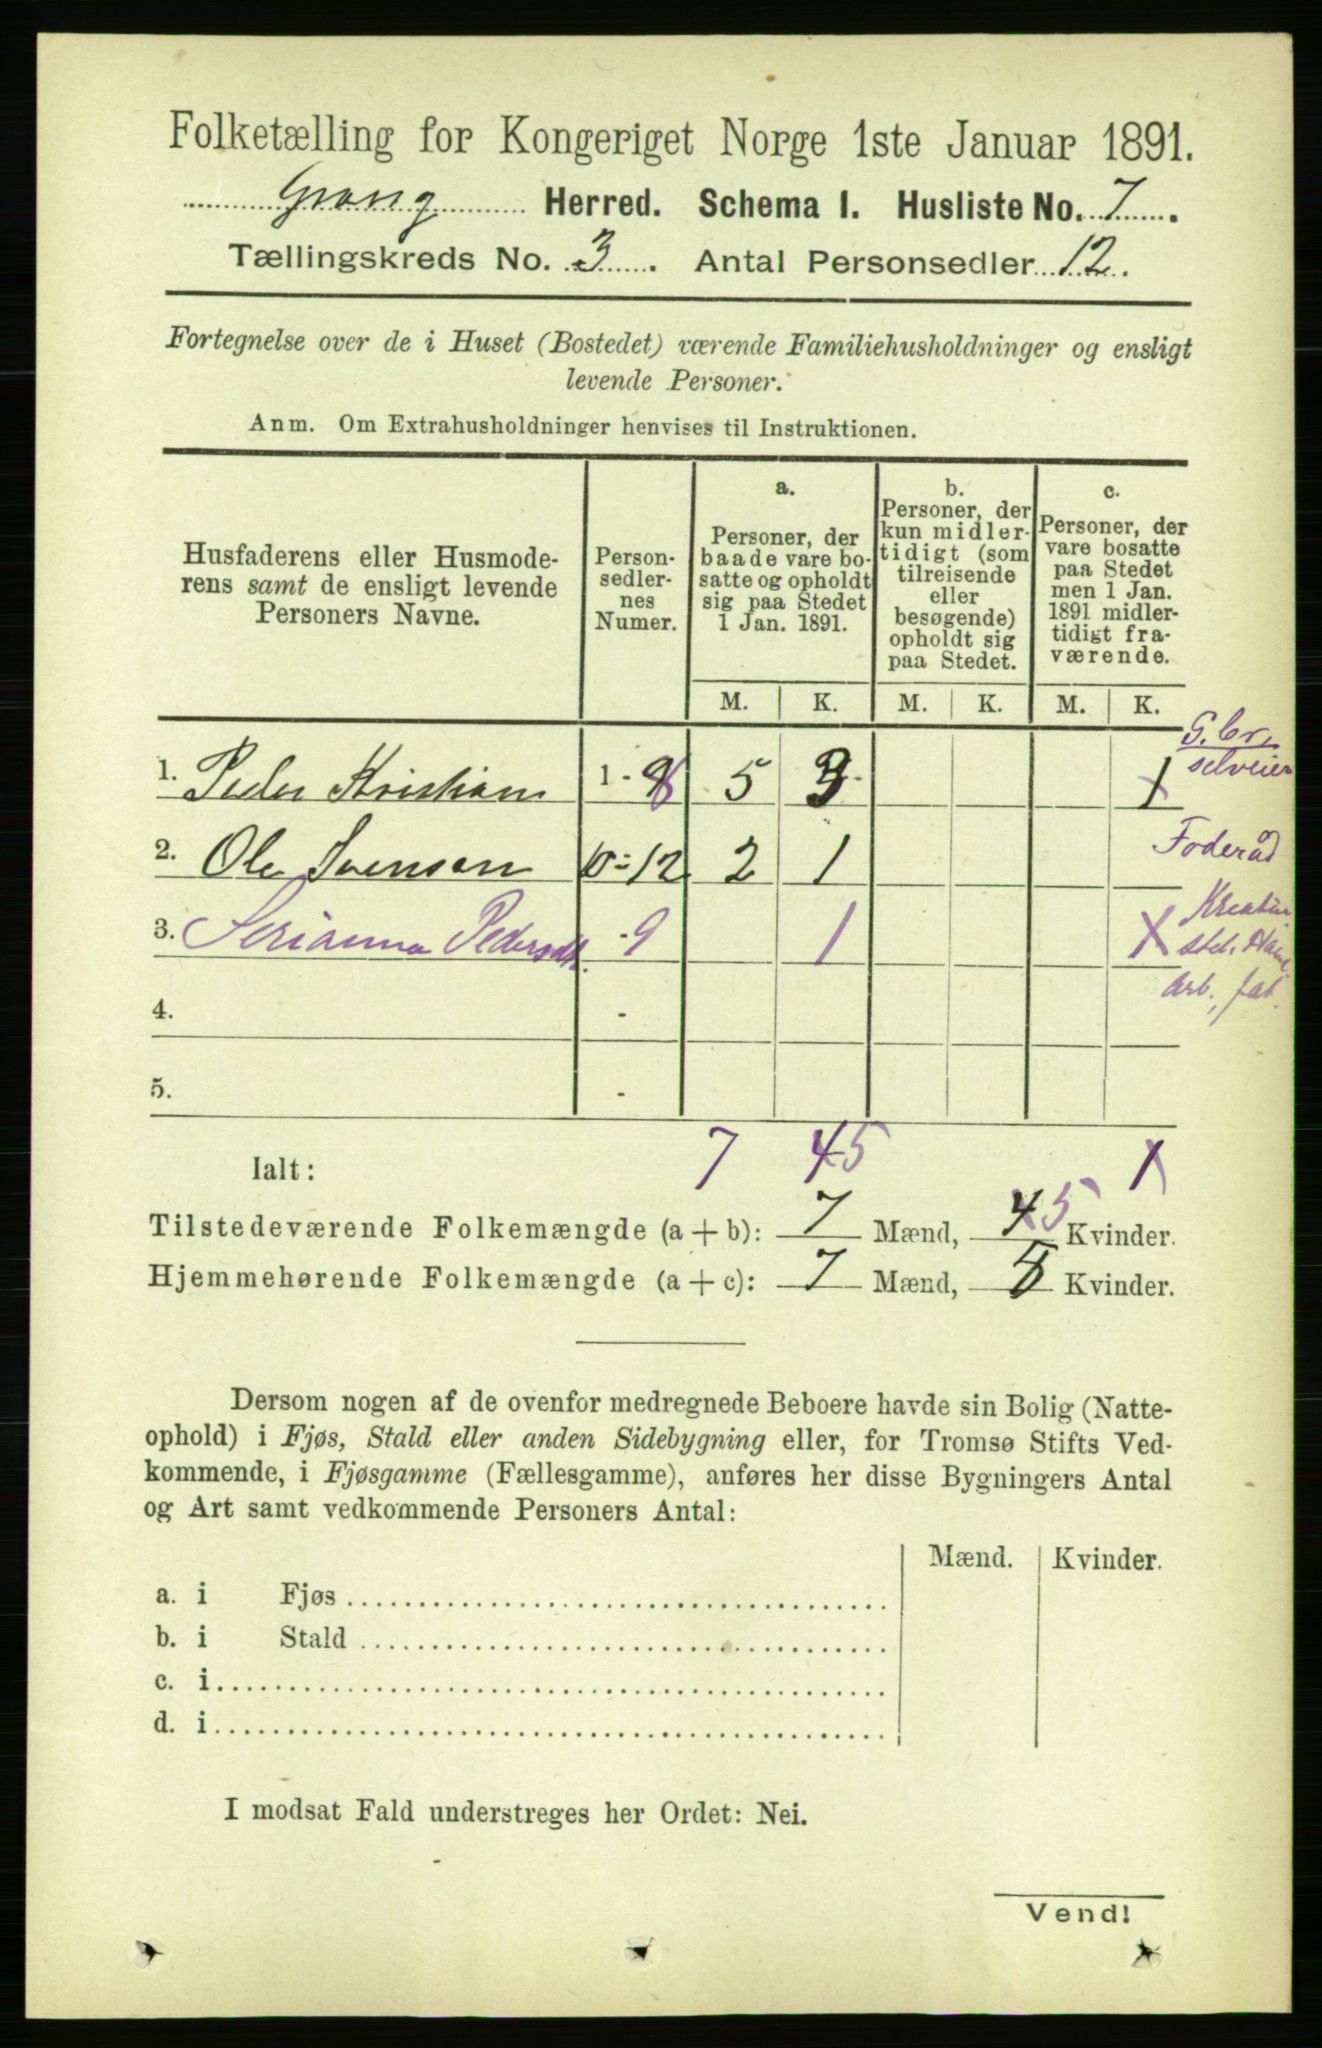 Folketælling for Kongeriget Norge 1ste Januar 1891.
Grong Herred. Schema I. Husliste No. 7.
Tællingskreds No. 3. Antal Personsedler 12.
Fortegnelse over de i Huset (Bostedet) værende Familiehusholdninger og ensligt
levende Personer.
Anm. Om Extrahusholdninger henvises til Instruktionen.
Husfaderens eller Husmode-
rens samt de ensligt levende
Personers Navne.
Person-
sedler-
nes
Numer.
a.
Personer, der
baade vare bo-
satte og opholdt
sig paa Stedet
1 Jan. 1891.
b.
Personer, der
kun midler-
tidigt (som
tilreisende
eller
besøgende)
opholdt sig
paa Stedet.
c.
Personer, der
vare bosatte
paa Stedet
men 1 Jan.
1891 midler-
tidigt fra-
værende.
M. K. M. K. M. K.
1. Peder Kristians 1 - 8 5 3 1
selveier
2. Ole Svensen 10 - 12 2 1
Foderåd
3. Serianna Pedersdt. - 9 1
Arb., fat.
4. -
5. -
Ialt: 7 45 1
Tilstedeværende Folkemængde (a + b): 7 Mænd, 45 Kvinder.
Hjemmehørende Folkemængde (a + c): 7 Mænd, 5 Kvinder.
Dersom nogen af de ovenfor medregnede Beboere havde sin Bolig (Natte-
ophold) i Fjøs, Stald eller anden Sidebygning eller, for Tromsø Stifts Ved-
kommende, i Fjøsgamme (Fællesgamme), anføres her disse Bygningers Antal
og Art samt vedkommende Personers Antal:
Mænd. Kvinder.
a. i Fjøs
b. i Stald
c. i
d. i
I modsat Fald understreges her Ordet: Nei.
Vend!